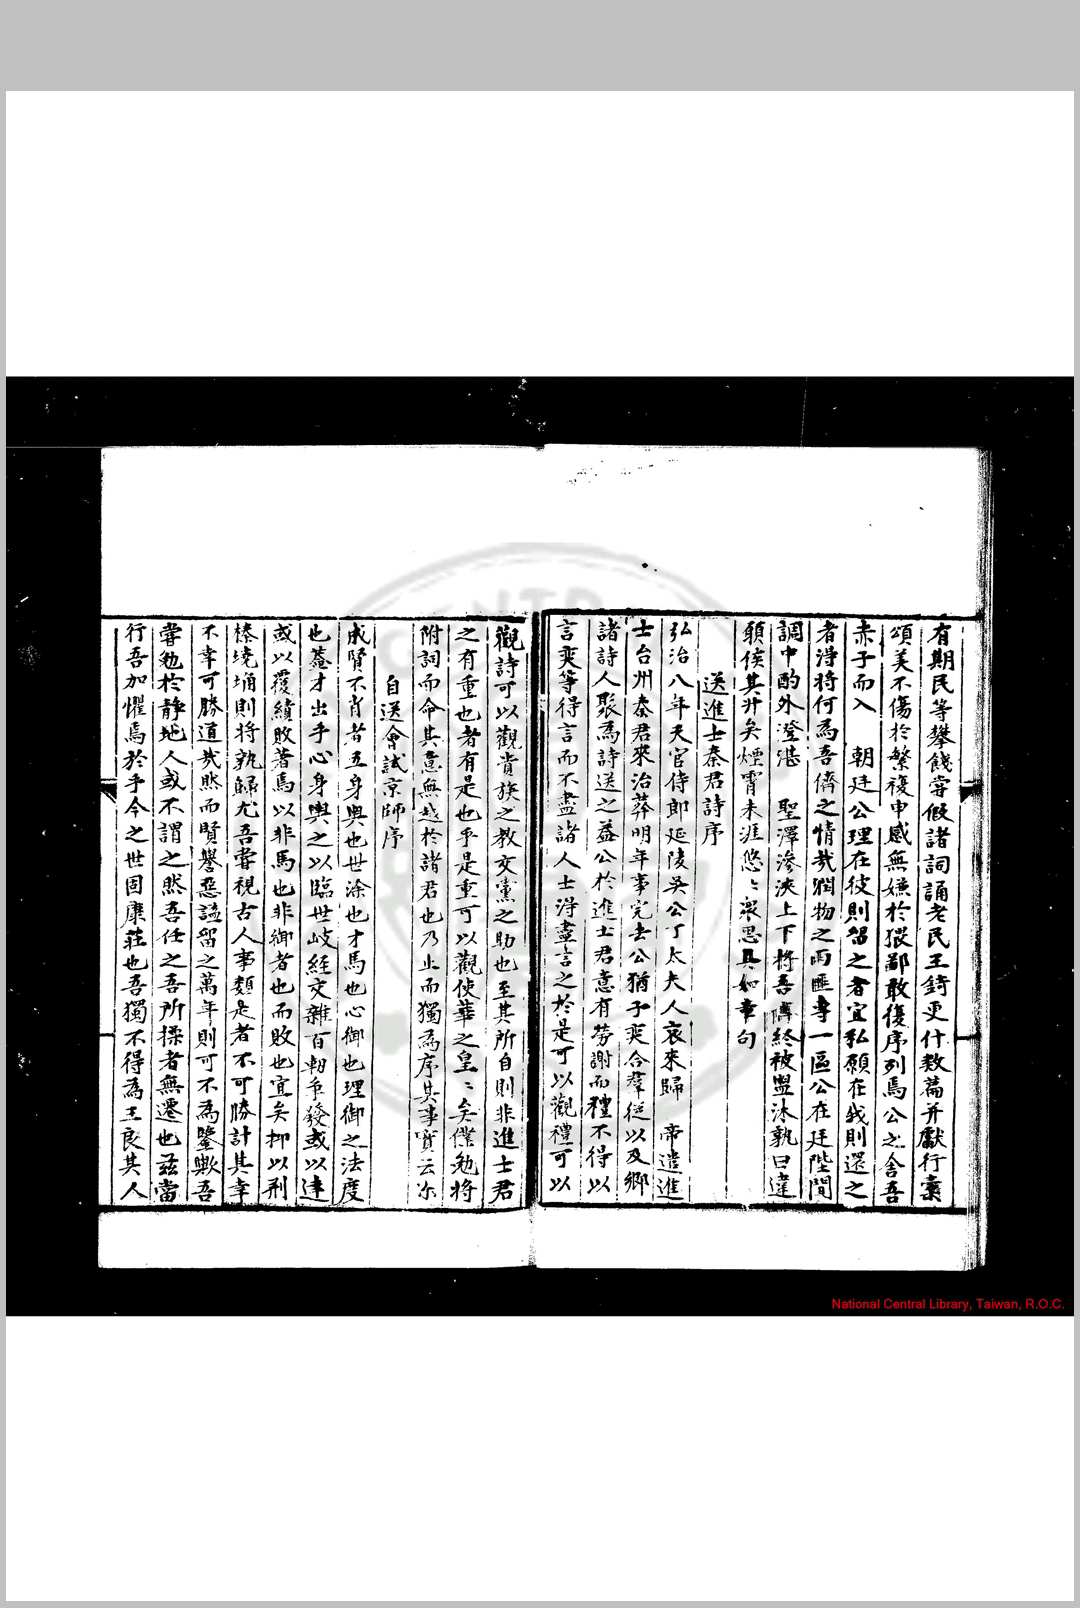 有期民等攀餞嘗假諸詞誦老民王錡更什數篇并獻行橐
頌美不傷於繁複申感無嫌於猥鄙敢復序列焉公之舍吾
赤子而入 朝廷公理在彼則留之者宜私願在我則還之
者淂將何為吾儕之情哉潤物之雨匪専一區公在廷陛間
調中酌外澄湛 聖澤滲浹上下將吾儔終被盥沐孰曰違
頋侯其升矣煙霄未涯悠〻衆思具如章句
送進士秦君詩序
弘治八年天官侍郎延陵吳公丁太夫人哀來歸 帝遣進
士台州秦君來治葬明年事完去公猶子奕合羣従以及鄉
諸詩人聚為詩送之葢公於進士君意有勞謝而禮不得以
言奕等得言而不盡諸人士淂盡言之於是可以觀禮可以
觀詩可以觀貴族之教交黨之助也至其所自則非進士君
之有重也者有是也乎是重可以觀使華之皇〻矣僕勉將
附詞而命其意無越於諸君也乃止而獨為序其事實云尓
自送會試京師序
成賢不肖者五身輿也世涂也才馬也心御也理御之法度
也葢才出乎心身輿之以臨世岐經交雜百朝爭發或以達
或以覆績敗著馬以非馬也非御者也而敗也宜矣抑以荆
榛墝埇則将孰歸尤吾嘗視古人事類是者不可勝計其幸
不幸可勝道哉然而賢譽惡謚留之萬年則可不為鑒歟吾
嘗勉於靜地人或不謂之然吾任之吾所操者無遷也茲當
行吾加懼焉於乎今之世固康莊也吾獨不得為王良其人